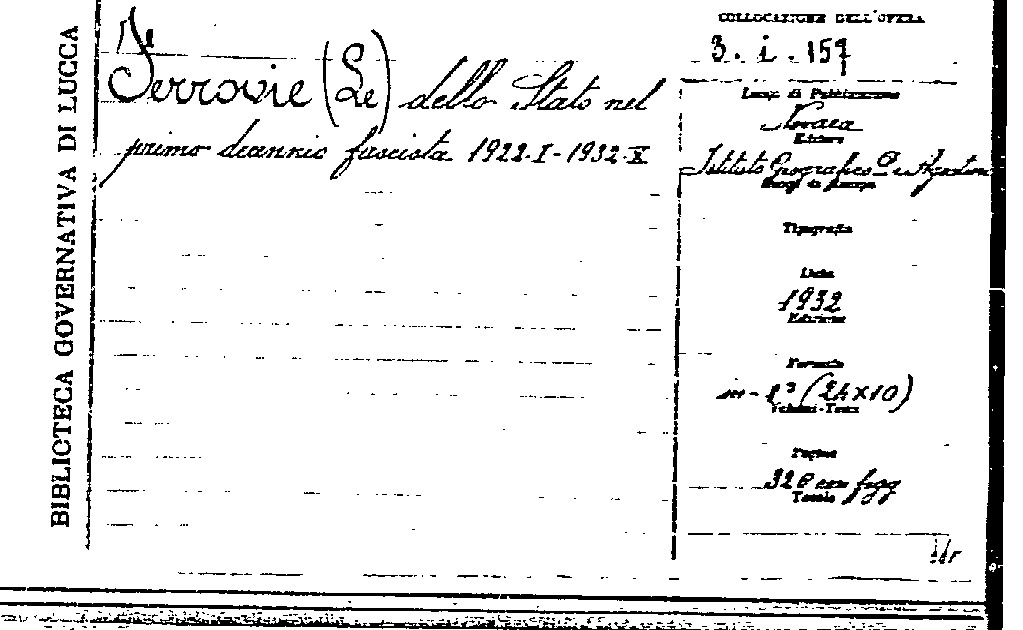 BIBLIOTECA GOVERNATIVA DI LUCCA
Ferrovie (Le) dello Stato nel
primo decennio fascista 1922.I-1932.X
COLLOCAZIONE DELL'OPERA
3. i. 157
Luogo di Pubblicazione
Novara
Editore
Istituto Geografico De Agostini
Luogo di stampa
Tipografia
Data
1932
Edizione
Formato
in-8° (24x10)
Volumi-Tomi
Pagine
328 con figg
Tavole